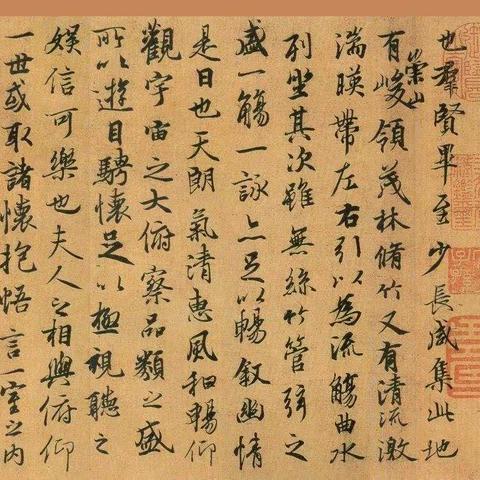 也羣賢畢至少長咸集此地
有崇山峻領茂林脩竹又有清流激
湍暎帶左右引以為流觴曲水
列坐其次雖無絲竹管弦之
盛一觴一詠亦足以暢敘幽情
是日也天朗氣清惠風和暢仰
觀宇宙之大俯察品類之盛
所以遊目騁懷足以極視聽之
娛信可樂也夫人之相與俯仰
一世或取諸懷抱悟言一室之內